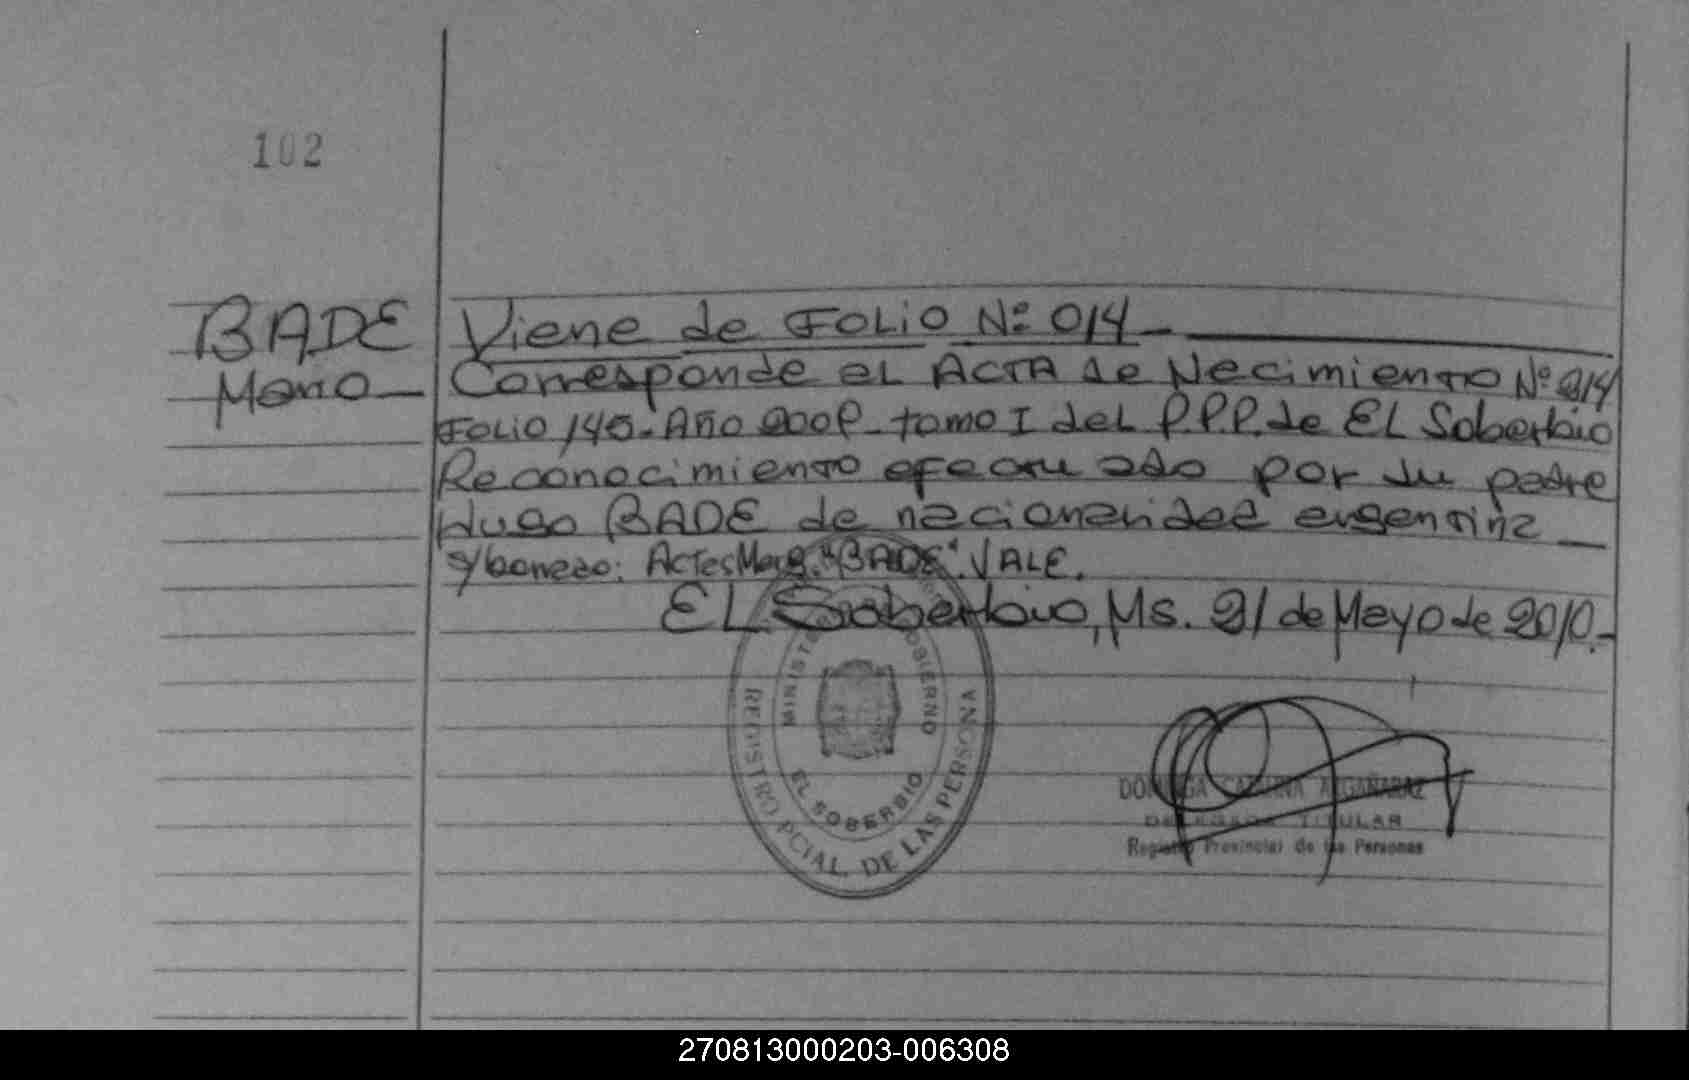 102
BADE
Mario
Viene de FOLIO Nº 014
Corresponde al ACTA de Nacimiento Nº 214
FOLIO 145. Año tomo I del P.P.P. de EL Soberbio
Reconocimiento efectuado por su padre
Hugo BADE de nacionalidad argentina
s/borrado: "BADE". VALE.
EL Soberbio, Ms. 21 de Mayo de 2010.
MINISTERIO GOBIERNO
EL SOBERBIO
REGISTRO PCIAL. DE LAS PERSONA
DOMINGA CATALINA ARGAÑARAZ
DELEGADA TITULAR
Registro Provincial de las Personas
270813000203-006308